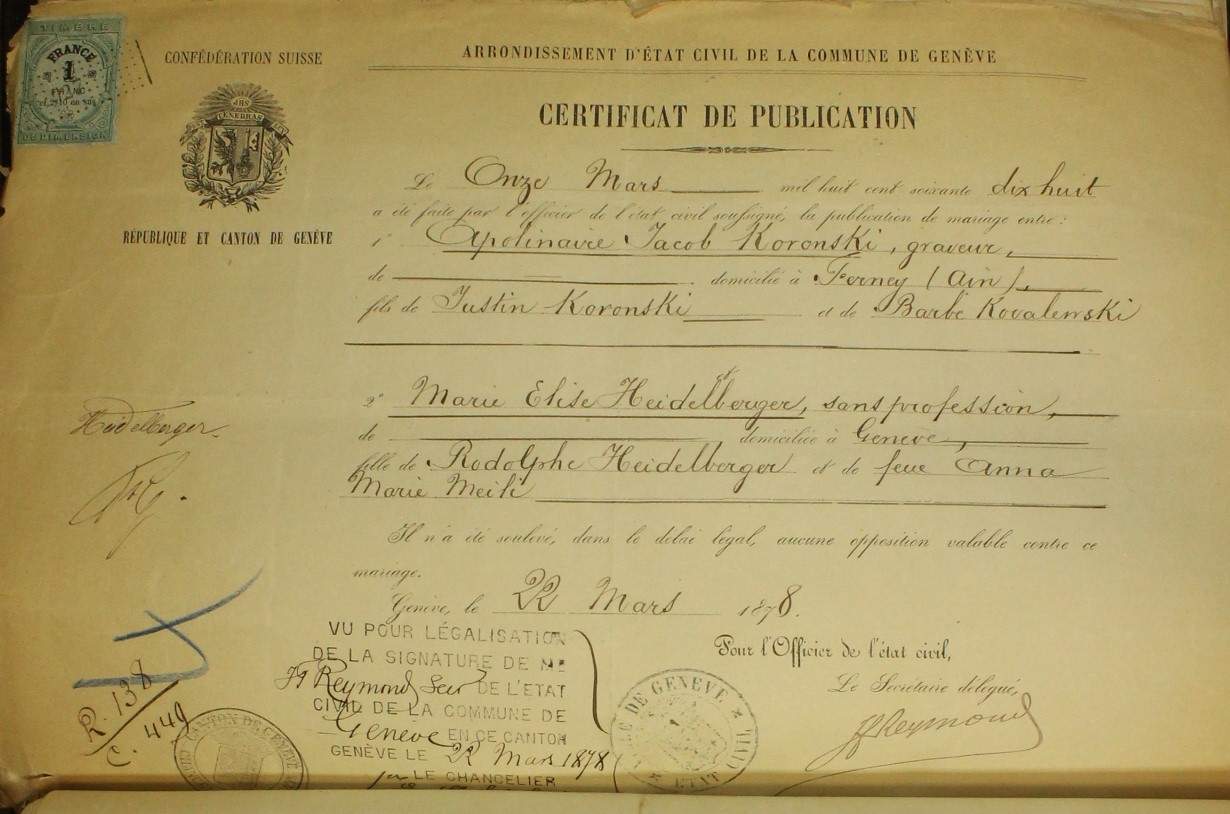 TIMBRE
FRANCE
1
FRANC
DE DIMENSION
CONFÉDÉRATION SUISSE
JHS
RÉPUBLIQUE ET CANTON DE GENÈVE
ARRONDISSEMENT D'ÉTAT CIVIL DE LA COMMUNE DE GENÈVE
CERTIFICAT DE PUBLICATION
Le Onze Mars mil huit cent soixante dix huit
a été faite par l'officier de l'état civil soussigné, la publication de mariage entre:
1° Apolinaire Jacob Koronski, graveur,
de domicilié à Ferney (Ain),
fils de Justin Koronski et de Barbe Kovalewski
2° Marie Elise Heidelberger, sans profession,
de domiciliée à Genève,
fille de Rodolphe Heidelberger et de feue Anna
Marie Meili
Heidelberger.
Il n'a été soulevé, dans le délai légal, aucune opposition valable contre ce
mariage.
Genève, le 22 Mars 1878.
Pour l'Officier de l'état civil,
Le Secrétaire délégué,
Reymond
VU POUR LÉGALISATION
DE LA SIGNATURE DE Mr
Reymond Secr DE L'ETAT
CIVIL DE LA COMMUNE DE
Genève EN CE CANTON
GENÈVE LE 22 Mars 1878
pr LE CHANCELIER
R. 138
C. 449
CANTON DE GENEVE
VILLE DE GENEVE
ETAT CIVIL